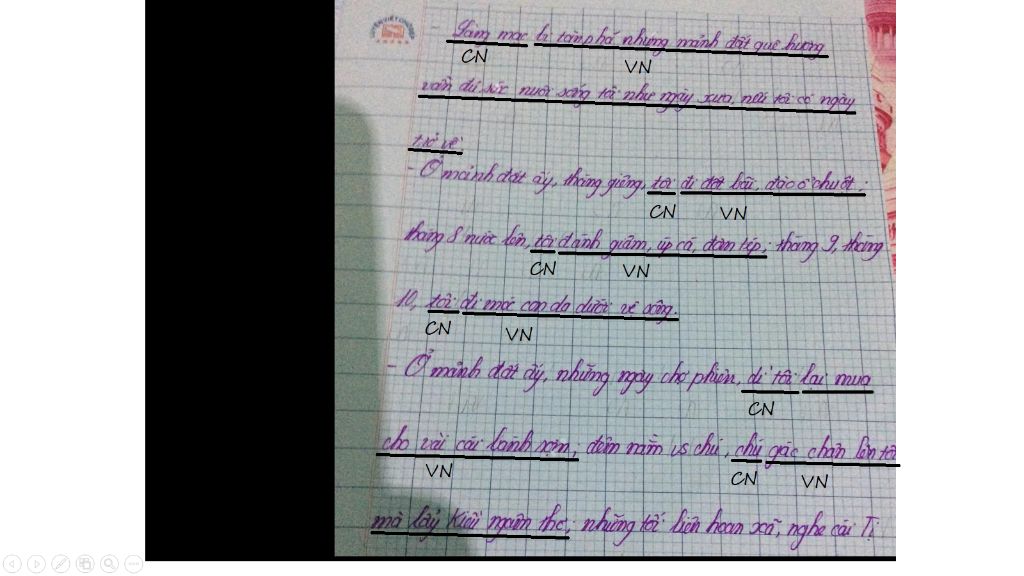 - Làng mạc bị tàn phá nhưng mảnh đất quê hương
CN VN
vẫn đủ sức nuôi sống tôi như ngày xưa, nếu tôi có ngày
trở về
- Ở mảnh đất ấy, tháng giêng, tôi đi đốt bãi, đào ổ chuột;
CN VN
tháng 8 nước lên, tôi đánh giậm, úp cá, đơm tép; tháng 9, tháng
CN VN
10, tôi đi móc con da dưới vệ sông.
CN VN
- Ở mảnh đất ấy, những ngày chợ phiên, dì tôi lại mua
CN
cho vài cái bánh rợm; đêm nằm vs chú, chú gác chân lên tôi
VN CN VN
mà lẩy Kiều ngâm thơ; những tối liên hoan xã, nghe cái Tị